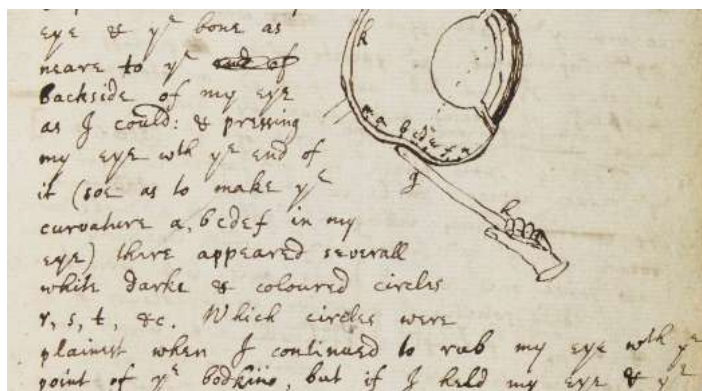 eye & yᵉ bone as
neare to yᵉ end of
backside of my eye
as I could: & pressing
my eye wth yᵉ end of
it (soe as to make yᵉ
curvature a, bcdef in my
eye) there appeared severall
white darke & coloured circles
r, s, t, &c. Which circles were
plainest when I continued to rub my eye wth yᵉ
point of yᵉ bodkine, but if I held my eye & yᵉ
k
a b c d e f
g
h